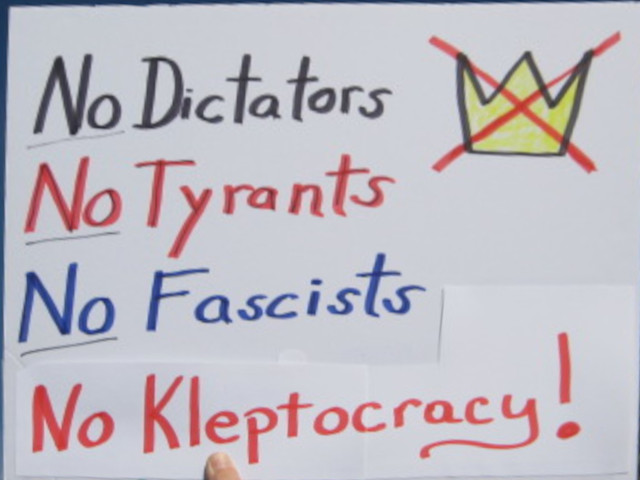 No Dictators
No Tyrants
No Fascists
No Kleptocracy!